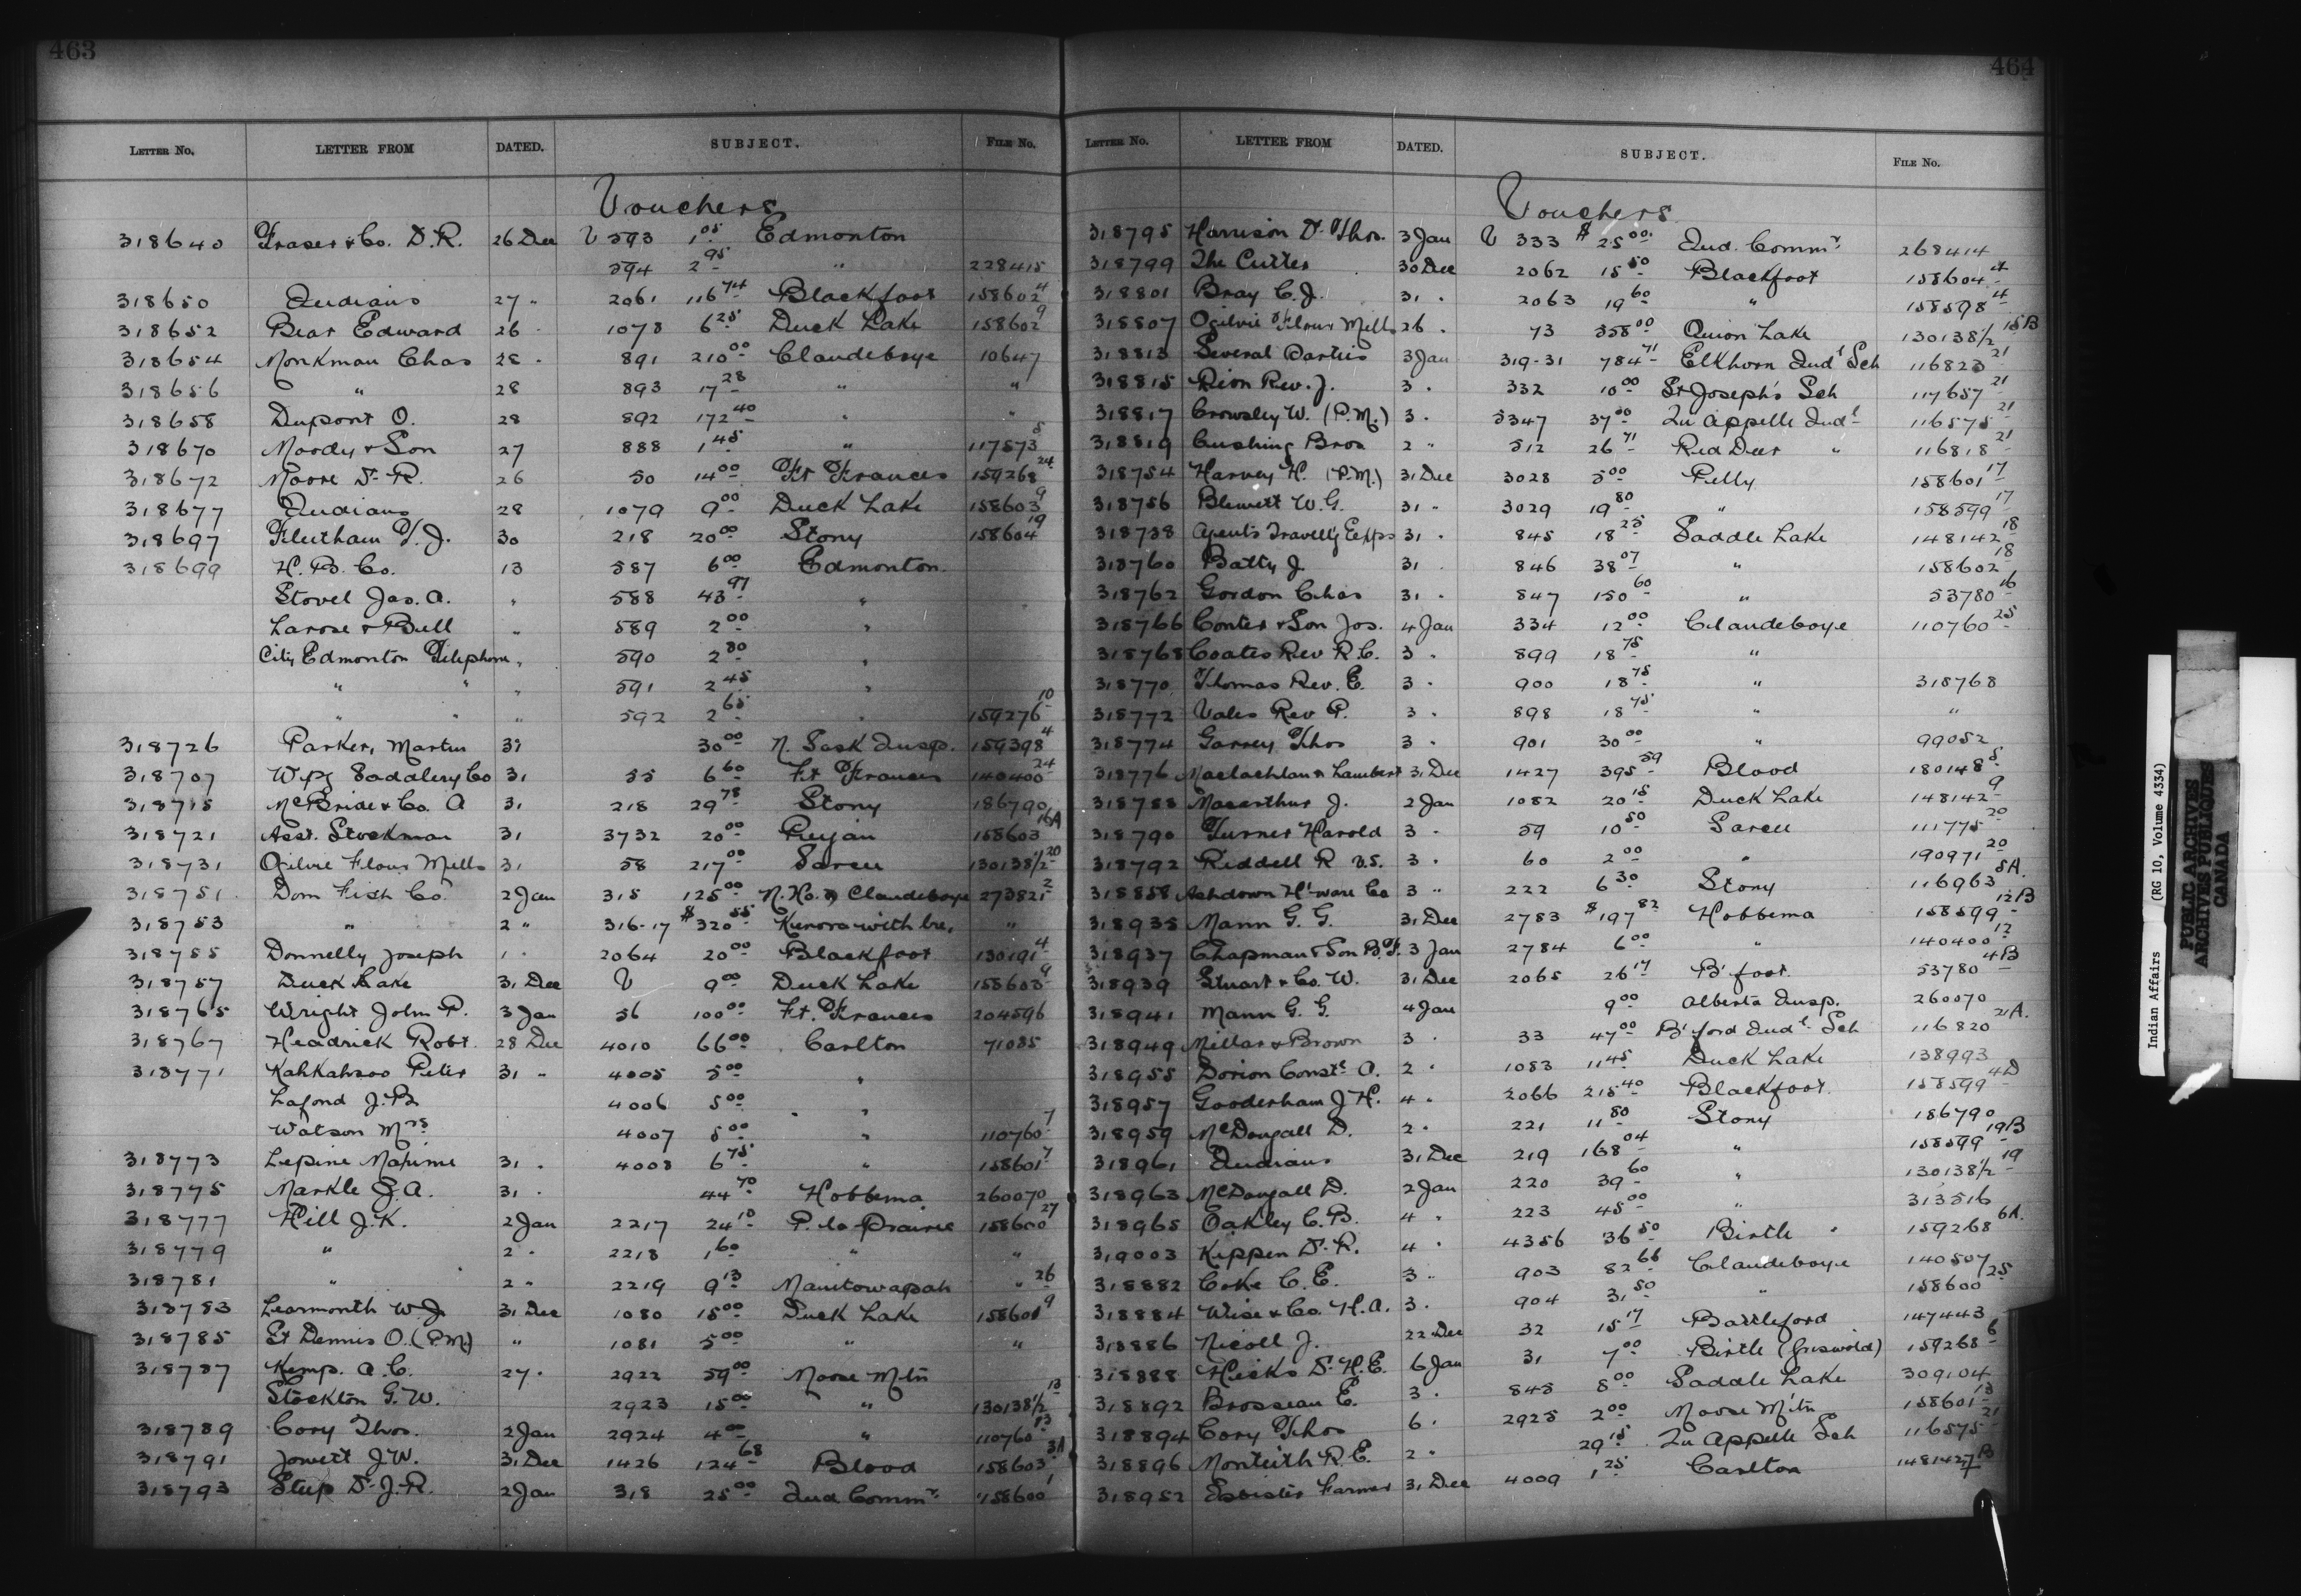 463
LETTER NO. LETTER FROM DATED. SUBJECT. FILE NO.
Vouchers
318640 Fraser & Co. D.R. 26 Dec V 593 1.05 Edmonton
594 2.95 " 228415
318650 Indians 27 " 2061 116.74 Blackfoot 158602 4
318652 Bear Edward 26 " 1078 6.25 Duck Lake 158602 9
318654 Monkman Chas 28 " 891 210.00 Clandeboye 10647
318656 " 28 893 17.28 " "
318658 Dupont O. 28 892 172.40 " "
318670 Moody & Son 27 888 1.45 " 117573 5
318672 Moore Dr R. 26 50 14.00 Ft Frances 159268 24
318677 Indians 28 1079 9.00 Duck Lake 158603 9
318697 Fleetham T.J. 30 218 20.00 Stony 158604 19
318699 H.B. Co. 13 587 6.00 Edmonton
Stovel Jas. A. " 588 43.97 "
Larose & Bell " 589 2.00 "
City Edmonton Telephone " 590 2.80 "
" " " 591 2.45 "
" " " 592 2.65 " 159276 10
318726 Parker, Martin 31 30.00 N. Sask Insp. 159398 4
318707 Wpg Saddlery Co 31 55 6.60 Ft Frances 140400 24
318715 McBride & Co. A 31 218 29.78 Stony 186790
318721 Asst. Stockman 31 3732 20.00 Peigan 158603 16A
318731 Ogilvie Flour Mills 31 58 217.00 Sarcee 130138 1/2 20
318751 Dom Fish Co. 2 Jan 315 125.00 N. Ho. & Clandeboye 273821 2
318753 " 2 " 316-17 $320.55 Kenora with bre, "
318755 Donnelly Joseph 1 " 2064 20.00 Blackfoot 130191 4
318757 Duck Lake 31 Dec V 9.00 Duck Lake 158603 9
318765 Wright John P. 3 Jan 56 100.00 Ft. Frances 204596
318767 Headrick Robt 28 Dec 4010 66.00 Carlton 71085
318771 Kahkahsoo Peter 31 " 4005 5.00 "
Lafond J.B. 4006 5.00 "
Watson Mrs 4007 5.00 " 110760 7
318773 Lepine Maxime 31 " 4008 6.75 " 158601 7
318775 Markle J.A. 31 " 44.70 Hobbema 260070
318777 Hill J.K. 2 Jan 2217 24.10 P. la Prairie 158600 27
318779 " 2 " 2218 1.60 " "
318781 " 2 " 2219 9.13 Manitowapah " 26
318783 Learmonth W.J. 31 Dec 1080 15.00 Duck Lake 158601 9
318785 St Dennis O. (P.M.) " 1081 5.00 " "
318787 Kemp. A.C. 27 " 2922 59.00 Moose Mtn
Stockton G.W. 2923 15.00 " 130138 1/2 13
318789 Cory Thos. 2 Jan 2924 4.00 " 110760 13
318791 Jowett J.W. 31 Dec 1426 124.68 Blood 158603 3A
318793 Steep Dr J.R. 2 Jan 318 25.00 Ind Commr. 158600 1
464
LETTER NO. LETTER FROM DATED. SUBJECT. FILE NO.
Vouchers
318795 Harrison Dr Thos. 3 Jan V 333 $25.00 Ind. Commr. 268414
318799 The Cutter 30 Dec 2062 15.50 Blackfoot 158604 4
318801 Bray C.J. 31 " 2063 19.60 " 158598 4
318807 Ogilvie Flour Mills 26 " 73 358.00 Onion Lake 130138 1/2 15B
318813 Several Parties 3 Jan 319-31 784.71 Elkhorn Indl Sch 116823 21
318815 Dion Rev. J. 3 " 332 10.00 St Joseph's Sch 117657 21
318817 Crowsley W. (P.M.) 3 " 5347 37.00 Qu Appelle Indl 116575 21
318819 Cushing Bros 2 " 512 26.71 Red Deer " 116818 21
318754 Harvey H. (P.M.) 31 Dec 3028 5.00 Pelly 158601 17
318756 Blewett W.G. 31 " 3029 19.80 " 158599 17
318738 Agent's Travell'g Exps 31 " 845 18.25 Saddle Lake 148142 18
318760 Batty J. 31 " 846 38.07 " 158602 18
318762 Gordon Chas 31 " 847 150.60 " 53780 16
318766 Conter & Son Jos. 4 Jan 334 12.00 Clandeboye 110760 25
318768 Coates Rev R.C. 3 " 899 18.75 "
318770 Thomas Rev. E. 3 " 900 18.75 " 318768
318772 Vales Rev P. 3 " 898 18.75 " "
318774 Garvey Thos 3 " 901 30.00 " 99052
318776 Maclachlan & Lambert 31 Dec 1427 395.59 Blood 180148 5
318788 Macarthur J. 2 Jan 1082 20.15 Duck Lake 148142 9
318790 Turner Harold 3 " 59 10.50 Sarcee 111775 20
318792 Riddell R V.S. 3 " 60 2.00 " 190971 20
318858 Ashdown H'ware Co 3 " 222 6.30 Stony 116963 5A.
318935 Mann G.G. 31 Dec 2783 $197.82 Hobbema 158599 12B
318937 Chapman & Son B.F. 3 Jan 2784 6.00 " 140400 12
318939 Stuart & Co. W. 31 Dec 2065 26.17 B'foot 53780 4B
318941 Mann G.G. 4 Jan 9.00 Alberta Insp. 260070
318949 Millar & Brown 3 " 33 47.00 B'ford Indl. Sch 116820 21A.
318955 Dorion Const. A. 2 " 1083 11.45 Duck Lake 138993
318957 Gooderham J.H. 4 " 2066 215.40 Blackfoot 158599 4D
318959 McDougall D. 2 " 221 11.80 Stony 186790
318961 Indians 31 Dec 219 168.04 " 158599 19B
318963 McDougall D. 2 Jan 220 39.60 " 130138 1/2 19
318965 Oakley C.B. 4 " 223 45.00 " 313516
319003 Kippen Dr. R. 4 " 4356 36.50 Birtle " 159268 6A.
318882 Coke C.E. 3 " 903 82.66 Clandeboye 140507
318884 Wise & Co. H.A. 3 " 904 31.50 " 158600 25
318886 Nicoll J. 22 Dec 32 15.17 Battleford 147443
318888 Hicks Dr. H.E. 6 Jan 31 7.00 Birtle (Griswold) 159268 6
318892 Brosseau E. 3 " 848 8.00 Saddle Lake 309104
318894 Cory Thos 6 " 2925 2.00 Moose Mtn 158601 13
318896 Monteith R.E. 2 " 29.15 Qu Appelle Sch 116575 21
318952 Isbister Farmer 31 Dec 4009 1.25 Carlton 148142 7B
Indian Affairs (RG 10, Volume 4334)
PUBLIC ARCHIVES
ARCHIVES PUBLIQUES
CANADA